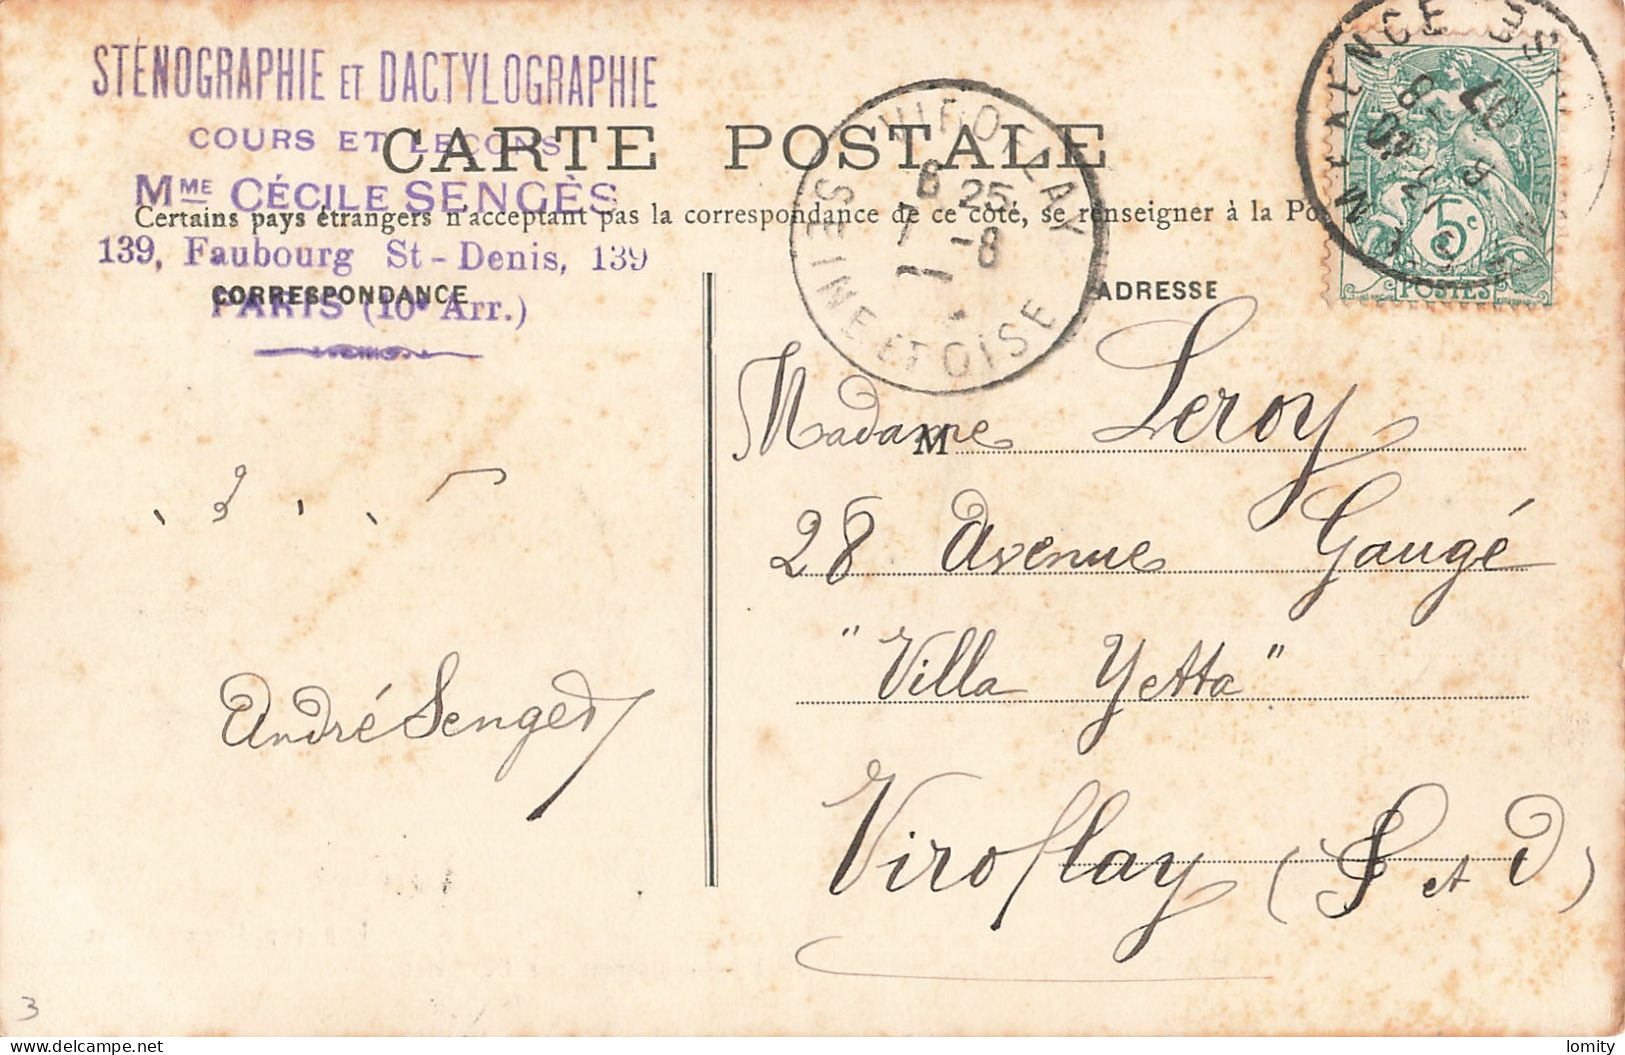 STÉNOGRAPHIE ET DACTYLOGRAPHIE
COURS ET LEÇONS
CARTE POSTALE
MME CÉCILE SENGÈS
Certains pays étrangers n'acceptant pas la correspondance de ce côté, se renseigner à la Po
139, Faubourg St-Denis, 139
CORRESPONDANCE
PARIS (10e Arr.)
ADRESSE
VIROFLAY
6 25
7 -8
SEINE ET OISE
5c
POSTES
M
Madame Leroy
28 Avenue Gaugé
"Villa Yetta"
Viroflay (S et O)
André Senges
3
lomity